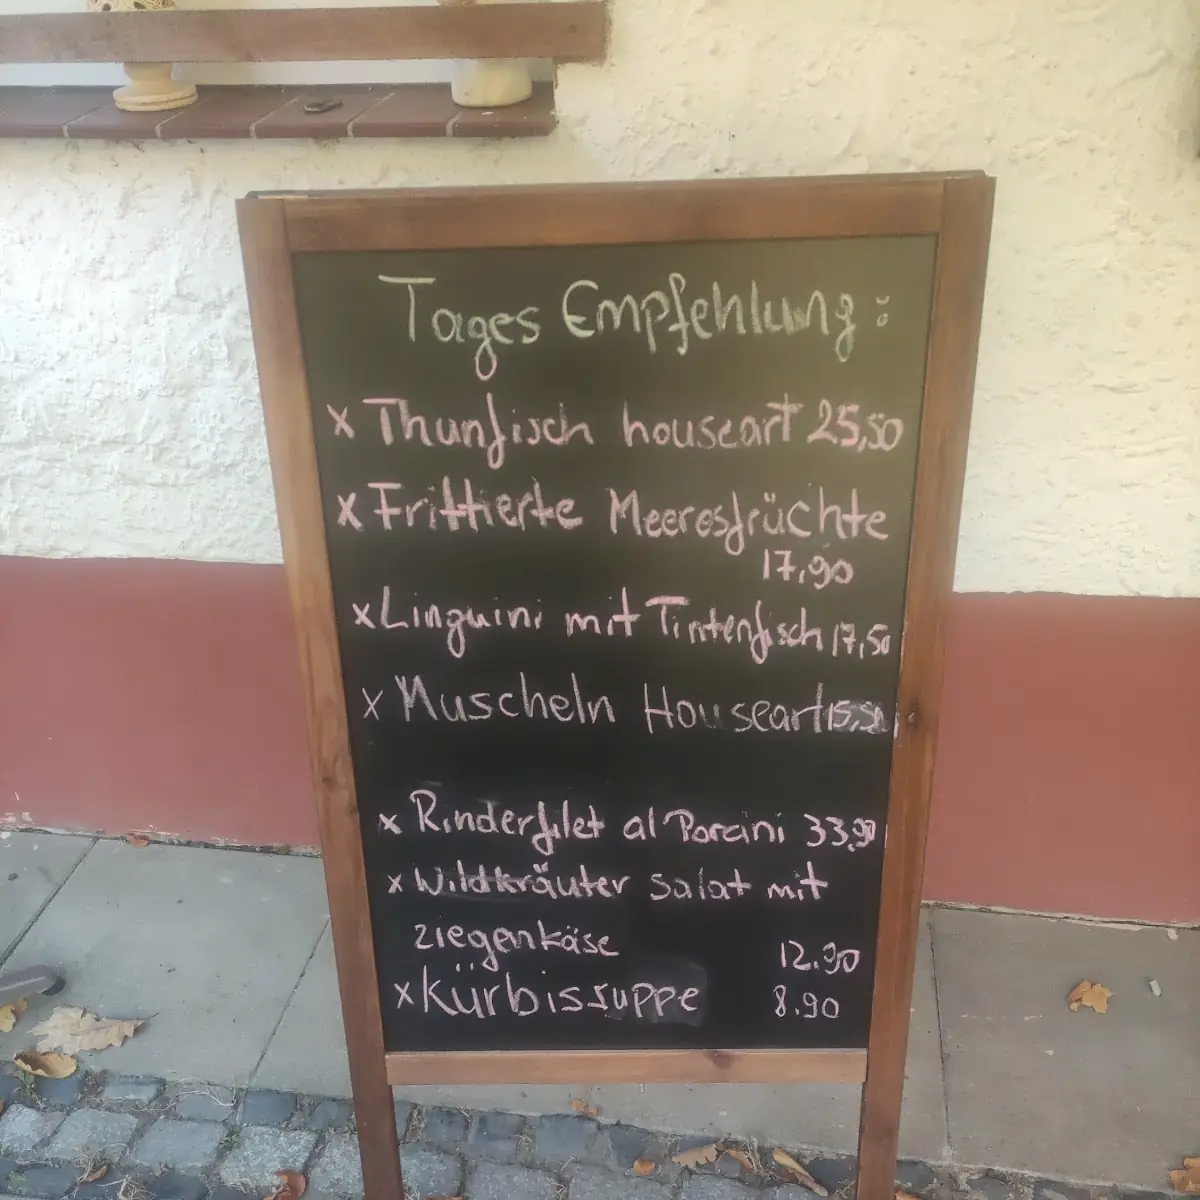 Tages Empfehlung:
x Thunfisch houseart 25,50
x Frittierte Meeresfrüchte
17,90
x Linguini mit Tintenfisch 17,50
x Muscheln Houseart 15,50
x Rinderfilet al Porcini 33,90
x Wildkräuter salat mit
ziegenkäse 12.90
x Kürbissuppe 8.90